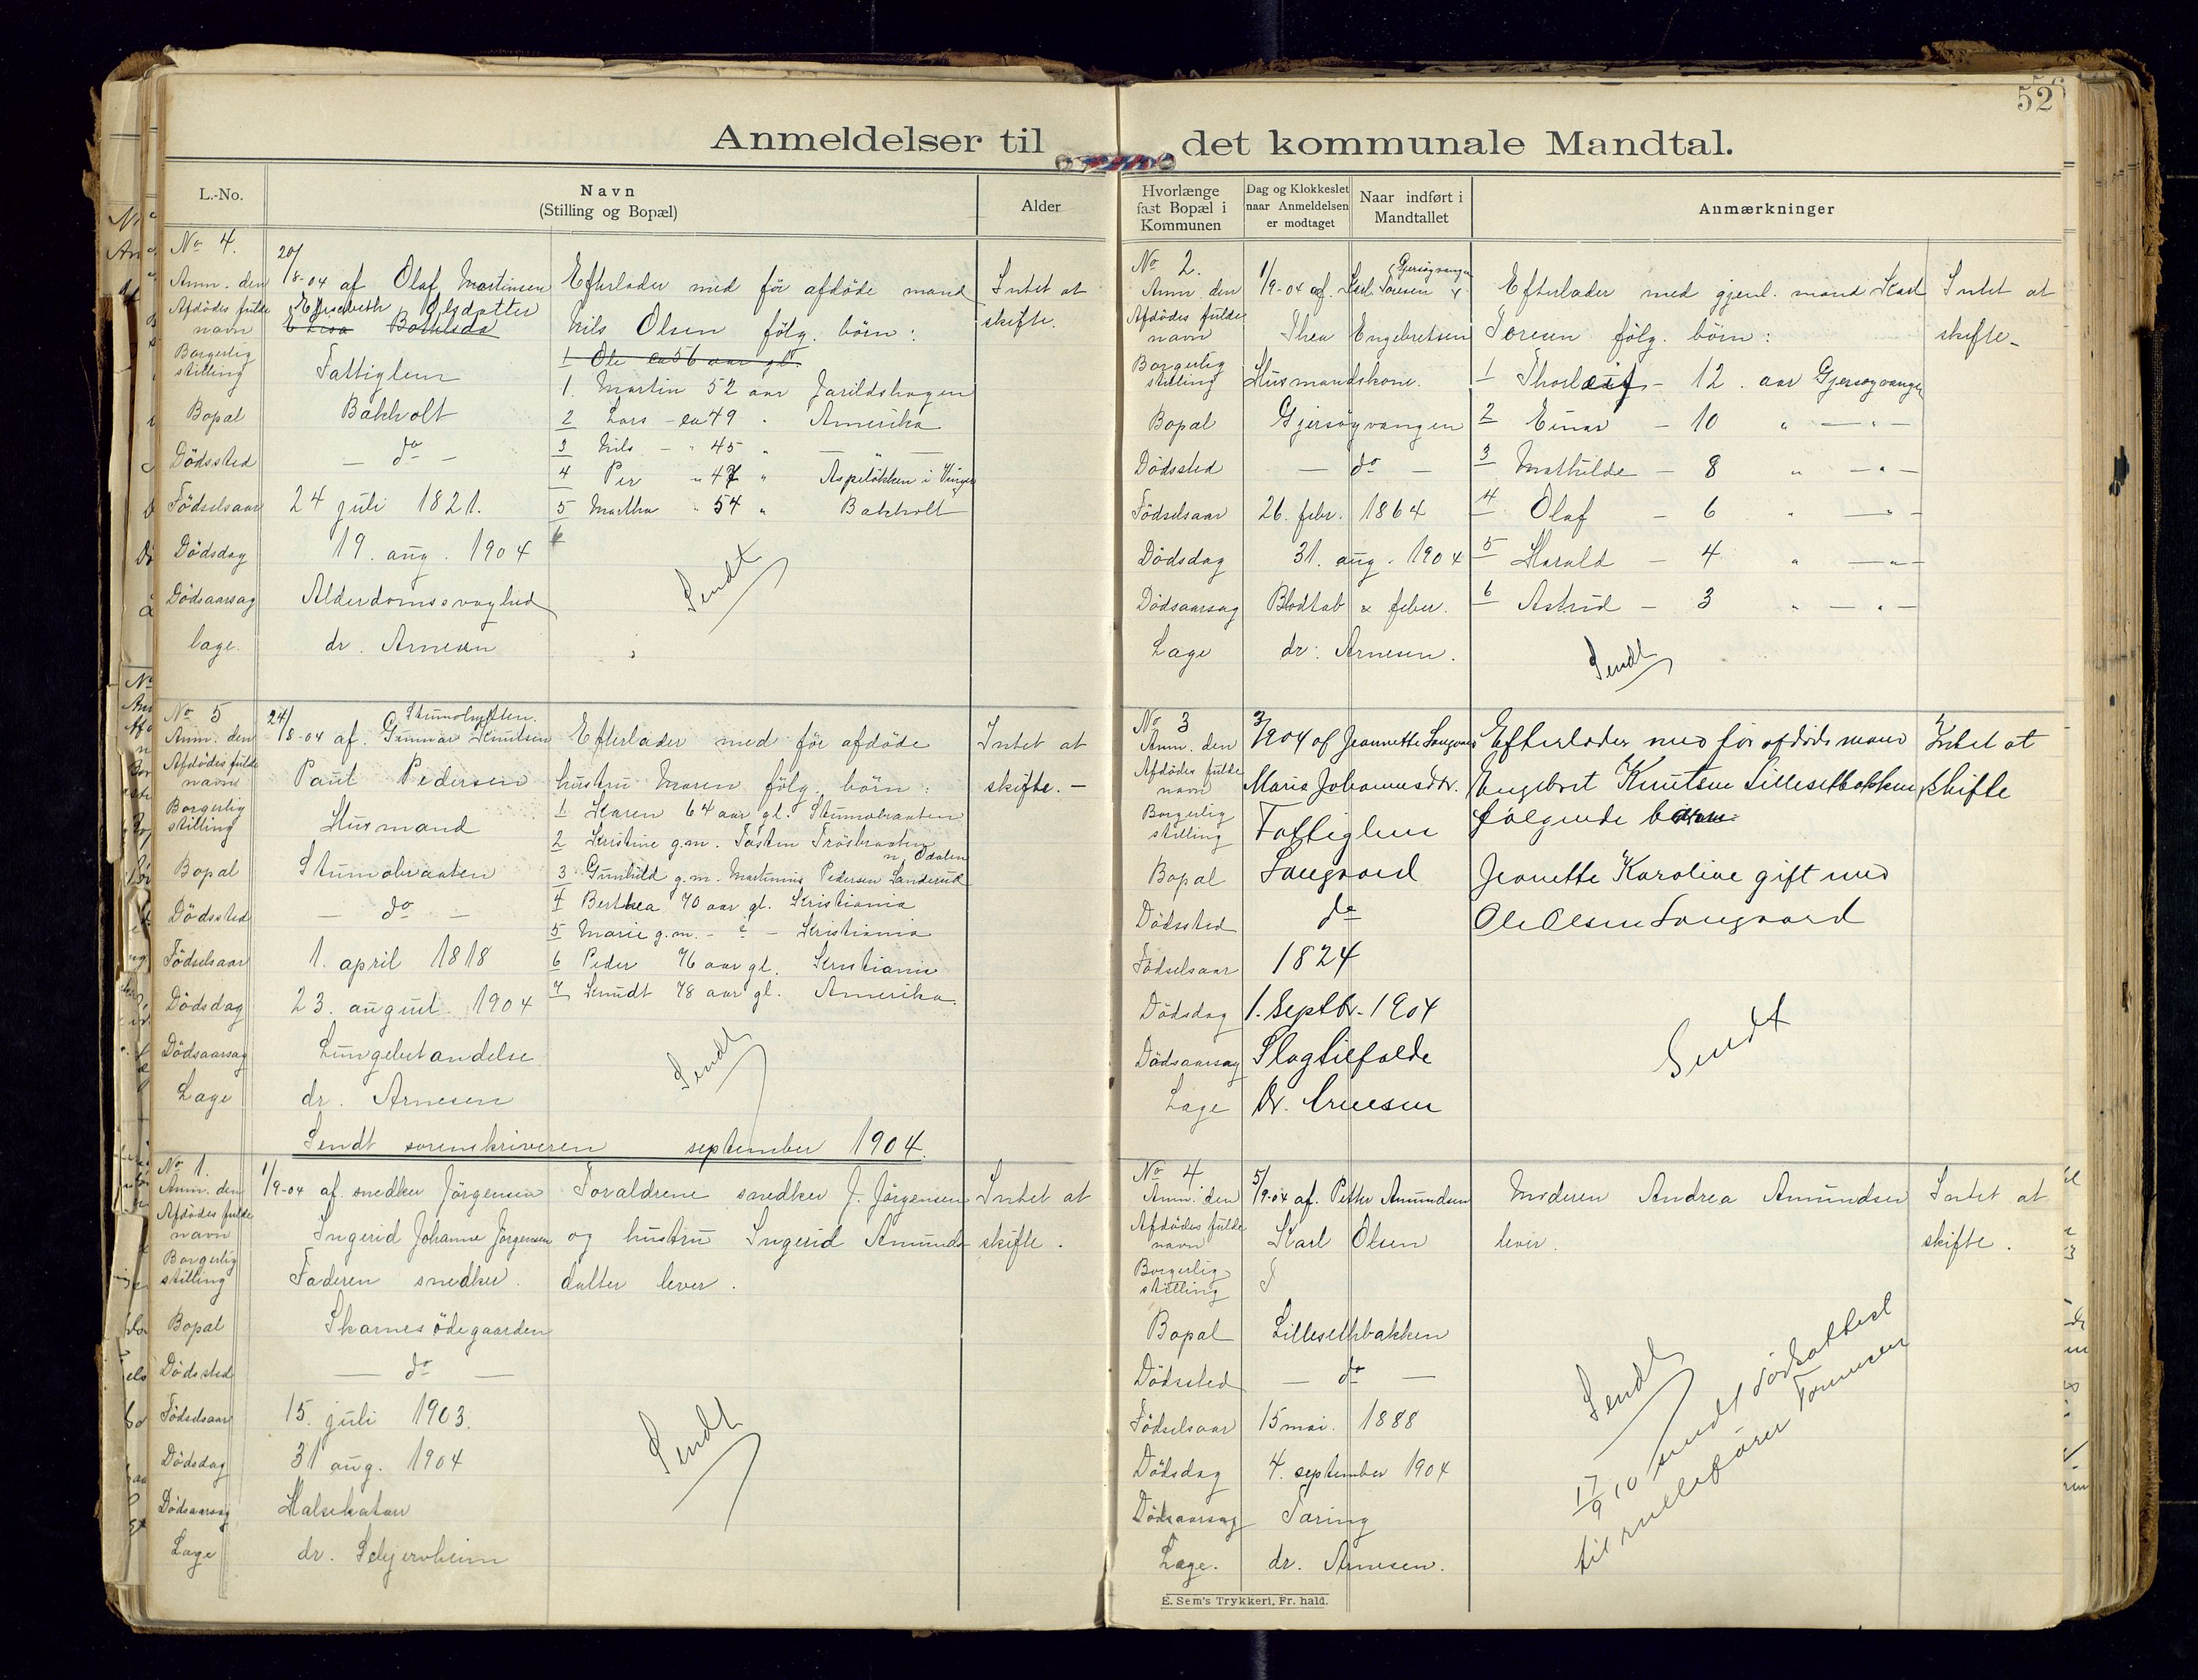 52
Anmeldelser til det kommunale Mandtal.
L.-No.
Navn
(Stilling og Bopæl)
Alder
No 4.
Anm. den 20/8-04 af Olaf Martinsen
Afdödes fulde
navn
Elisabeth Olsdatter
Borgerlig
stilling
Fattiglem
Bopæl Bakholt
Dödssted — do —
Födselsaar 24 juli 1821.
Dödsdag 19. aug. 1904
Dödsaarsag Alderdomssvaghed
Læge. dr. Arnesen
Efterlader med för afdöde mand
Nils Olsen fölg. börn:
1 Ole ca 56 aar gl.
1. Martin 52 aar Jarildshagen
2 Lars - ca 49 " Amerika
3 Nils - " 45 " — —
4 Per " 47 " Aspelökken i Vinger
5 Martha " 54 " Bakholt
Sendt
Intet at
skifte.
No 5
Anm. den 24/8-04 af. Gunnar Knutsen
Afdödes fulde
navn
Paul Pedersen
Borgerlig
stilling
Husmand
Bopæl Stumobraaten
Dödssted — do —
Födselsaar 1. april 1818
Dödsdag 23. august 1904
Dödsaarsag Lungebetændelse
Læge dr. Arnesen
Efterlader med för afdöde
hustru Maren fölg. börn:
1 Karen 64 aar gl. Stumobraaten
2 Kristine g.m. Fasten Frösbraaten
n. Odalen
3 Gunhild g.m. Martinius Pedersen Sanderud
4 Berthea 70 aar gl. Kristiania
5 Marie g.m. - ? - Kristiania
6 Peder 76 aar gl. Kristiania
7 Knudt 78 aar gl. Amerika.
Sendt
Intet at
skifte. —
Sendt sorenskriveren september 1904.
No 1.
Anm. den 1/9-04 af snedker Jörgensen
Afdödes fulde
navn
Ingerid Johanne Jörgensen
Borgerlig
stilling
Faderen snedker.
Bopæl Skarnes ödegaarden
Dödssted — do —
Födselsaar 15. juli 1903.
Dödsdag 31 aug. 1904
Dödsaarsag Halsekatarr
Læge dr. Schjervheim
Forældrene snedker J. Jörgensen
og hustru Ingerid Amunds-
datter lever.
Sendt
Intet at
skifte.
Hvorlænge
fast Bopæl i
Kommunen
Dag og Klokkeslet
naar Anmeldelsen
er modtaget
Naar indført i
Mandtallet
Anmærkninger
No 2.
Gjersøyvangen
Anm. den 1/9-04 af. Karl Toresen
Afdödes fulde
navn
Thea Engebretsen
Borgerlig
stilling
Husmandskone.
Bopæl Gjersøyvangen
Dödssted — do —
Födselsaar 26. febr. 1864
Dödsdag 31. aug. 1904
Dödsaarsag Blodtab & feber.
Læge dr. Arnesen.
Efterlader med gjenl. mand Karl
Toresen fölg. börn:
1 Thorleif - 12. aar Gjersøyvangen
2 Einar - 10 " — " —
3 Mathilde - 8 " — " —
4 Olaf - 6 " — " —
5 Harald - 4 " — " —
6 Astrid - 3 " — " —
Sendt
Intet at
skifte -
No 3
Anm. den 3/9 04 af Jeannette Langaard
Afdödes fulde
navn
Maria Johannesdtr.
Borgerlig
stilling
Fattiglem
Bopæl Langaard
Dödssted do
Födselsaar 1824
Dödsdag 1. Septbr. 1904
Dödsaarsag Slagtilfælde
Læge Dr. Arnesen
Efterlader med för afdöde mand
Engebret Knutsen Lillesethbakken
fölgende barn:
Jeanette Karoline gift med
Ole Olsen Langaard
Sendt
Intet at
skifte
No 4
Anm. den 5/9-04 af. Petter Amundsen
Afdödes fulde
navn
Karl Olsen
Borgerlig
stilling
Bopæl Lillesethbakken
Dödssted — do —
Födselsaar 15 mai. 1888
Dödsdag 4. september 1904
Dödsaarsag Tæring
Læge. dr. Arnesen.
Moderen Andrea Amundsen
lever.
Sendt
17/9 10 sendt dödsattest
til rulleförer Tønnesen
Intet at
skifte.
E. Sem's Trykkeri, Fr. hald.